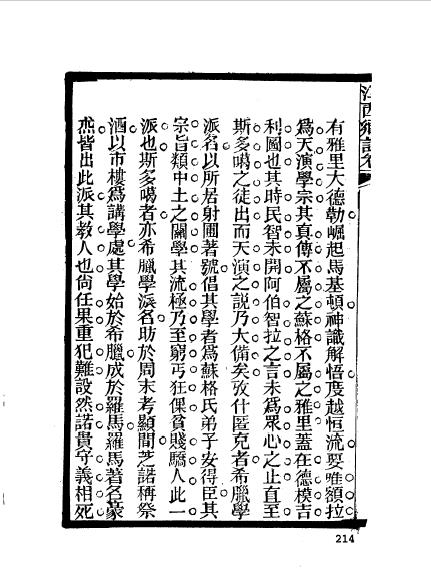 有雅里大德勒崛起馬基頓神識解悟度越恒流要唯額拉
爲天演學宗其眞傳不屬之蘇格不屬之雅里蓋在德模吉
利圖也其時民智未開阿伯智拉之言未爲眾心之止直至
斯多噶之徒出而天演之說乃大備矣攷什匿克者希臘學
派名以所居射圃著號倡其學者爲蘇格氏弟子安得臣其
宗旨類中土之關學其流極乃至窮丐狂倮貧賤驕人此一
派也斯多噶者亦希臘學派名昉於周末考顯間芝諾稱祭
酒以市樓爲講學處其學始於希臘成於羅馬羅馬著名豪
杰皆出此派其教人也尙任果重犯難設然諾貴守義相死
214